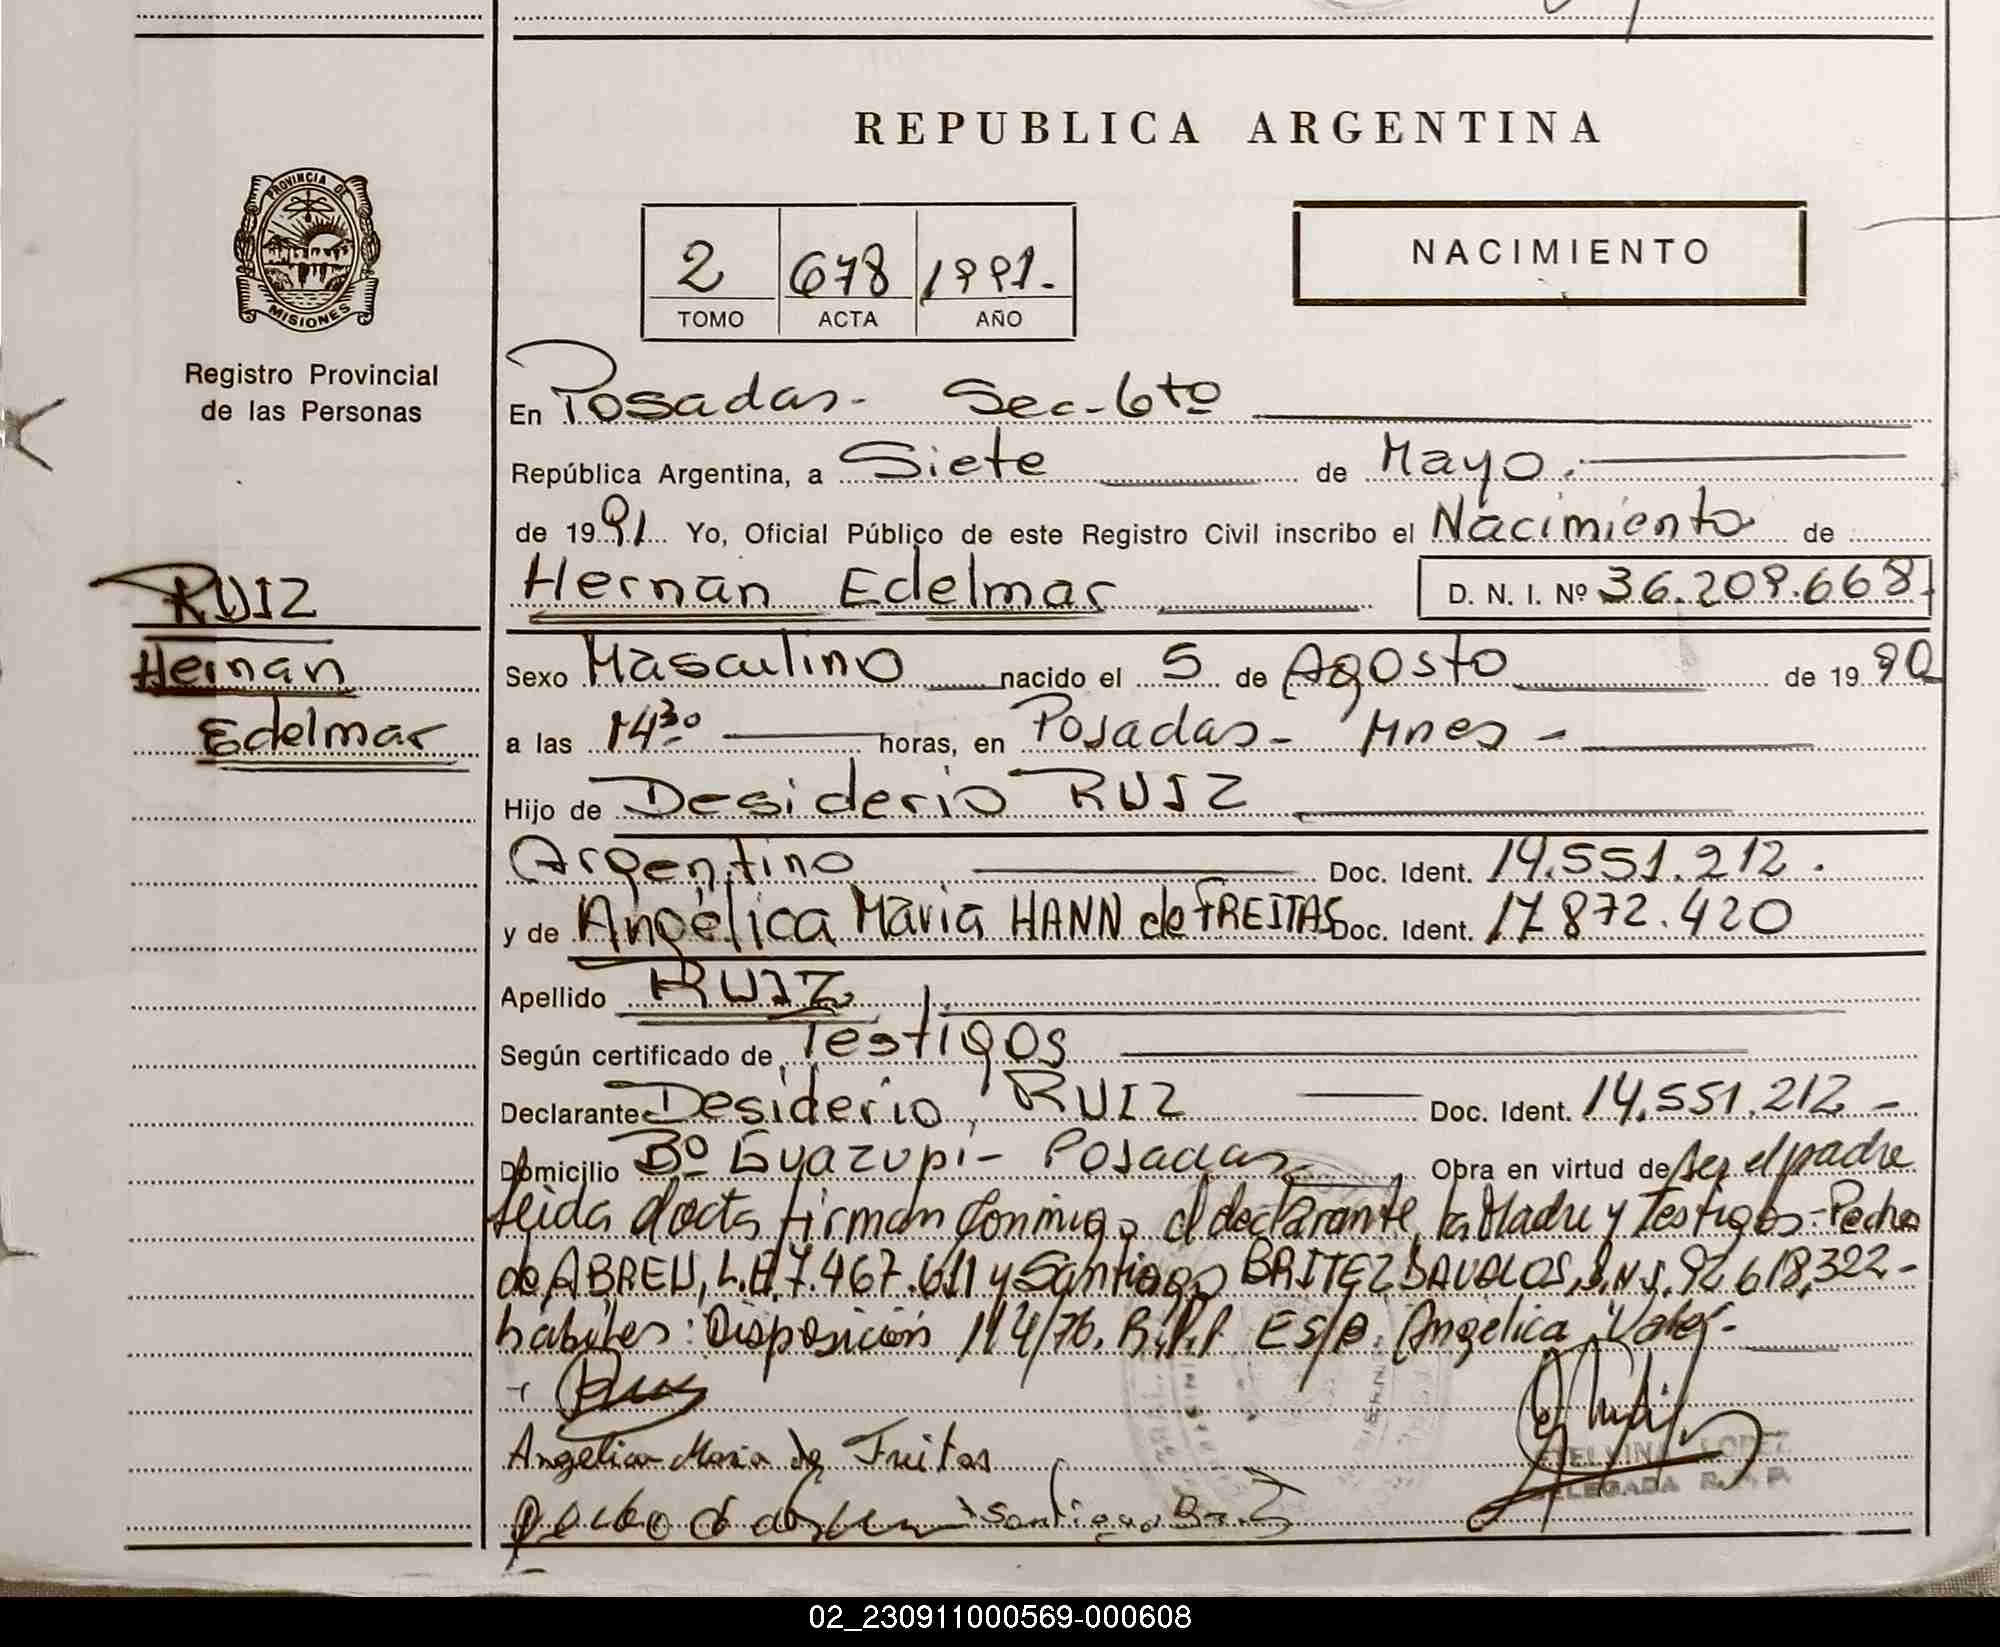 REPUBLICA ARGENTINA
PROVINCIA DE
MISIONES
Registro Provincial
de las Personas
2 678 1991.
TOMO ACTA AÑO
NACIMIENTO
En Posadas- Sec-6to
República Argentina, a Siete de Mayo.
de 1991 Yo, Oficial Público de este Registro Civil inscribo el Nacimiento de
Hernan Edelmar D. N. I. Nº 36.209.668
RUIZ
Hernan
Edelmar
Sexo Masculino nacido el 5 de Agosto de 1990
a las 14 30 horas, en Posadas- Mnes-
Hijo de Desiderio RUIZ
Argentino Doc. Ident. 14.551.212.
y de Angélica Maria HANN de FREITAS Doc. Ident. 17.872.420
Apellido RUIZ
Según certificado de Testigos
Declarante Desiderio RUIZ Doc. Ident. 14.551.212-
Domicilio Bº Guazupi- Posadas Obra en virtud de ser el padre
leida el acta firman conmigo el declarante, la Madre y Testigos:-Pedro
de ABREU, L.E. 7.467.611 y Santiago BRITEZ DAVALOS, D.N.I. 92.618.322-
habiles: Disposición 114/76. R.P.P ES/o. Angelica Vale.-
Angelica Maria de Freitas
Pedro d abreu Santiago
ETELVINA LOPEZ
DELEGADA R. P. P.
02_230911000569-000608